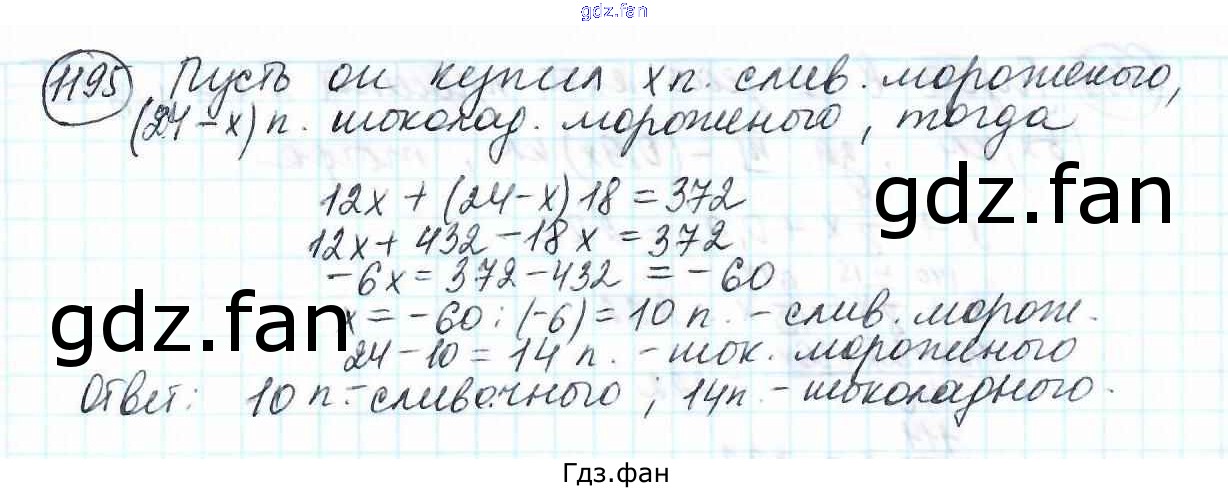 gdz.fan
1195 Пусть он купил x п. слив. мороженого,
(24-x) п. шоколад. мороженого, тогда
gdz.fan
12x + (24-x)18 = 372
12x + 432 - 18x = 372
-6x = 372 - 432 = -60
gdz.fan
x = -60 : (-6) = 10 п. - слив. морож.
24 - 10 = 14 п. - шок. мороженого
Ответ: 10 п. - сливочного; 14 п. - шоколадного.
Гдз.фан